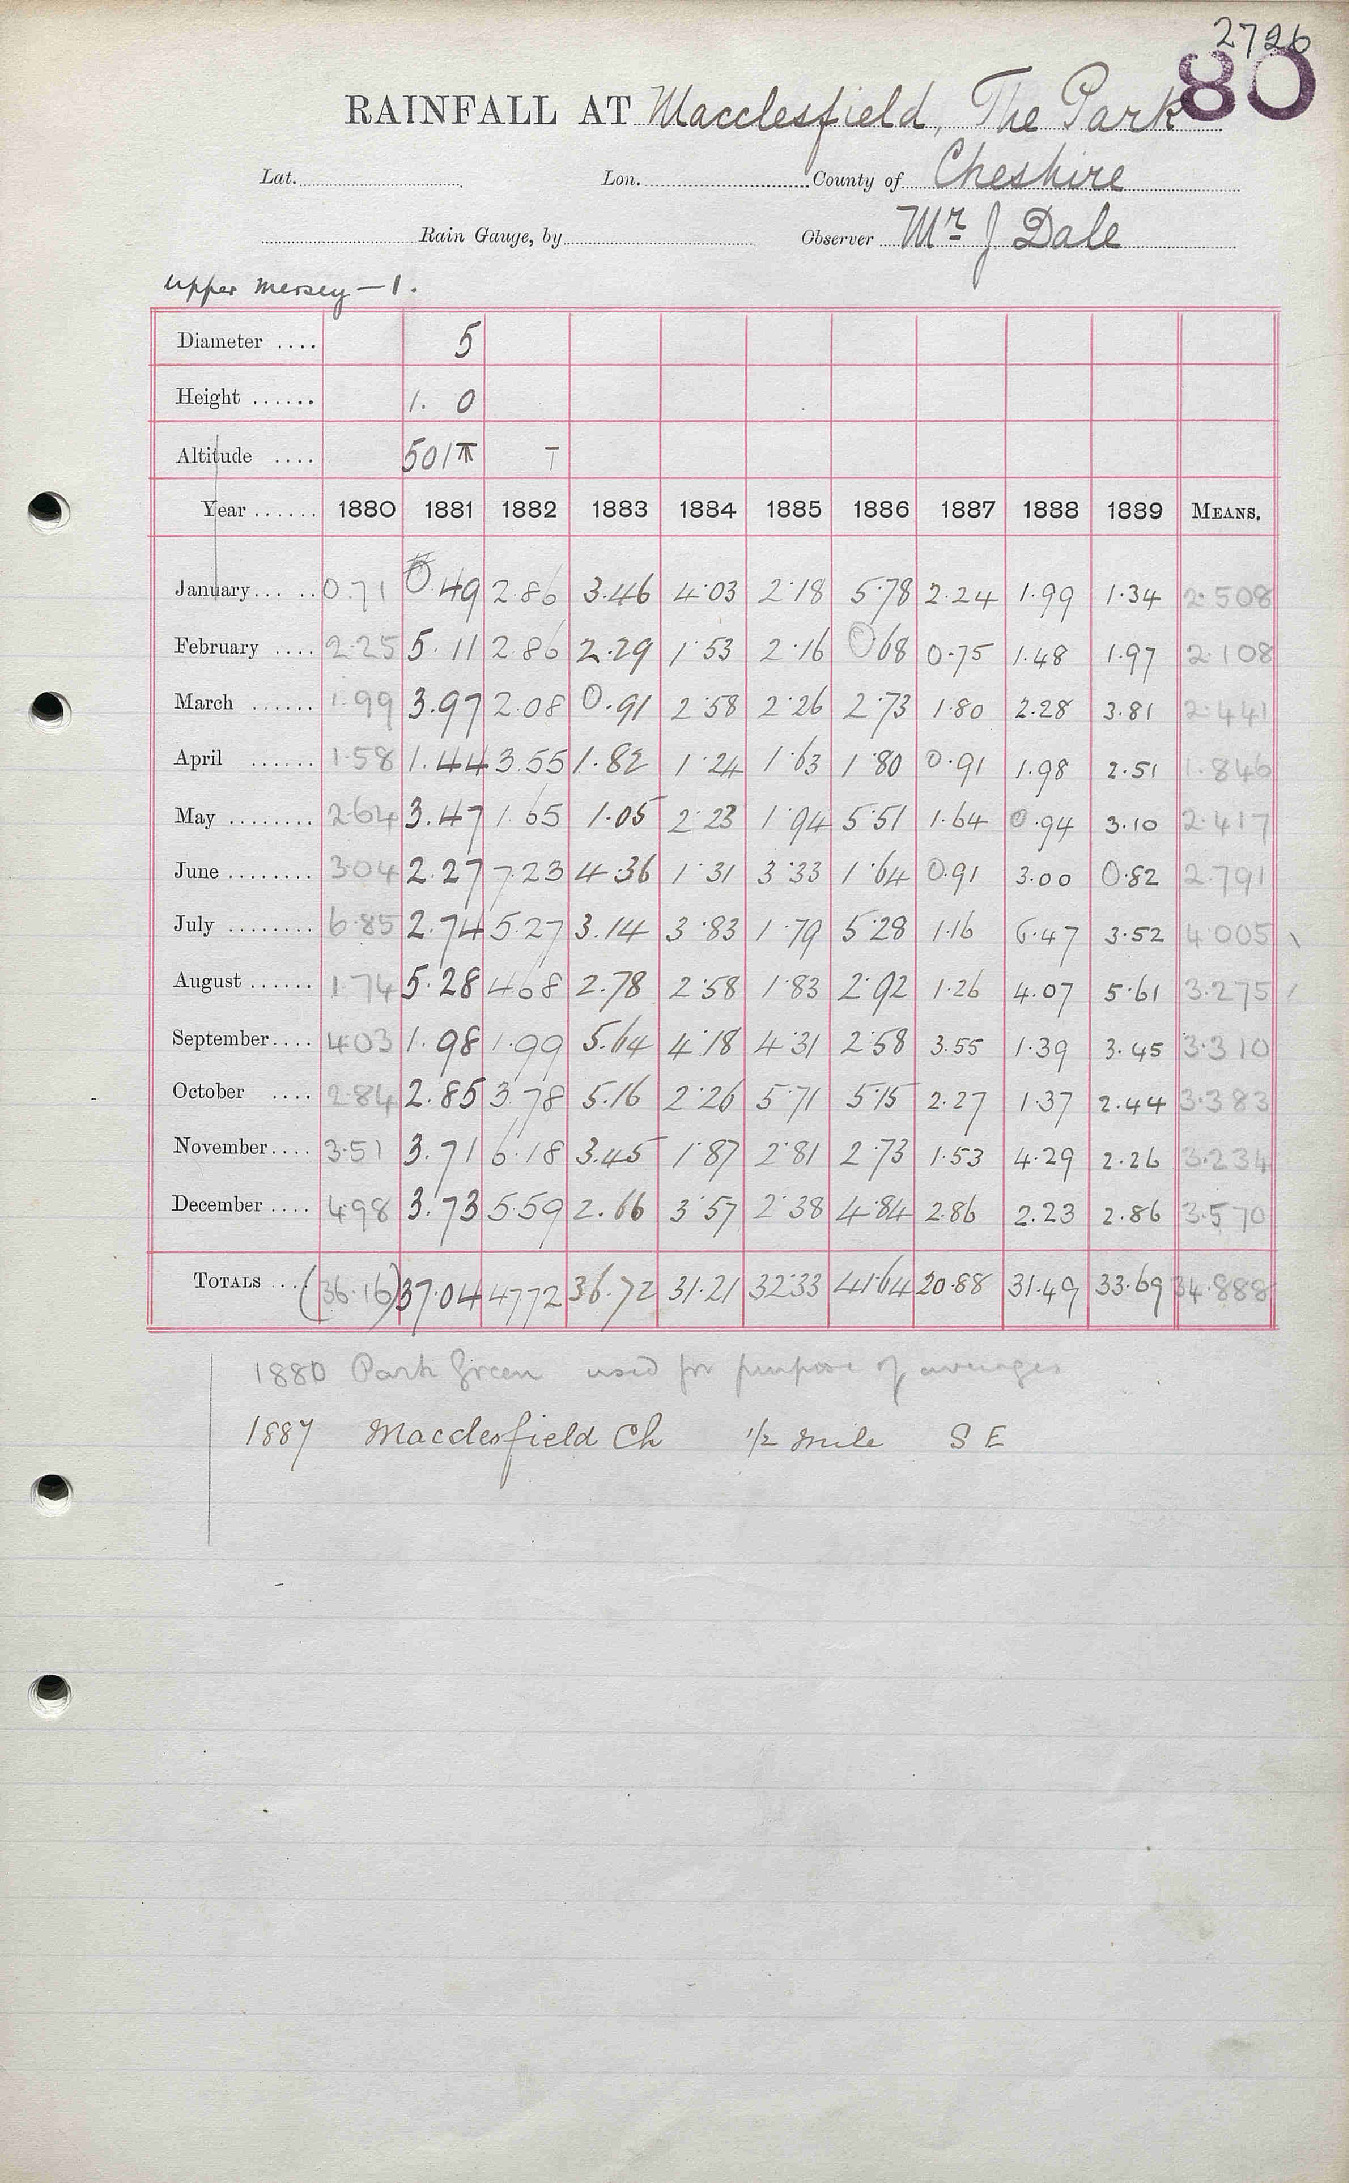 2726
80
RAINFALL AT Macclesfield, The Park
Lat. Lon. County of Cheshire
Rain Gauge, by Observer Mr J Dale
Upper Mersey - 1.
Diameter .... 5
Height ...... 1. 0
Altitude .... 501 T
Year ...... 1880 1881 1882 1883 1884 1885 1886 1887 1888 1889 MEANS.
January ..... 0.71 0.49 2.86 3.46 4.03 2.18 5.78 2.24 1.99 1.34 2.508
February .... 2.25 5.11 2.86 2.29 1.53 2.16 0.68 0.75 1.48 1.97 2.108
March ...... 1.99 3.97 2.08 0.91 2.58 2.26 2.73 1.80 2.28 3.81 2.441
April ...... 1.58 1.44 3.55 1.82 1.24 1.63 1.80 0.91 1.98 2.51 1.846
May ........ 2.64 3.47 1.65 1.05 2.23 1.94 5.51 1.64 0.94 3.10 2.417
June ........ 3.04 2.27 7.23 4.36 1.31 3.33 1.64 0.91 3.00 0.82 2.791
July ........ 6.85 2.74 5.27 3.14 3.83 1.79 5.28 1.16 6.47 3.52 4.005
August ...... 1.74 5.28 4.68 2.78 2.58 1.83 2.92 1.26 4.07 5.61 3.275
September .... 4.03 1.98 1.99 5.64 4.18 4.31 2.58 3.55 1.39 3.45 3.310
October .... 2.84 2.85 3.78 5.16 2.26 5.71 5.15 2.27 1.37 2.44 3.383
November .... 3.51 3.71 6.18 3.45 1.87 2.81 2.73 1.53 4.29 2.26 3.234
December .... 4.98 3.73 5.59 2.66 3.57 2.38 4.84 2.86 2.23 2.86 3.570
TOTALS ... (36.16) 37.04 47.72 36.72 31.21 32.33 41.64 20.88 31.49 33.69 34.888
1880 Park Green used for purpose of averages
1887 Macclesfield Ch 1/2 mile S E